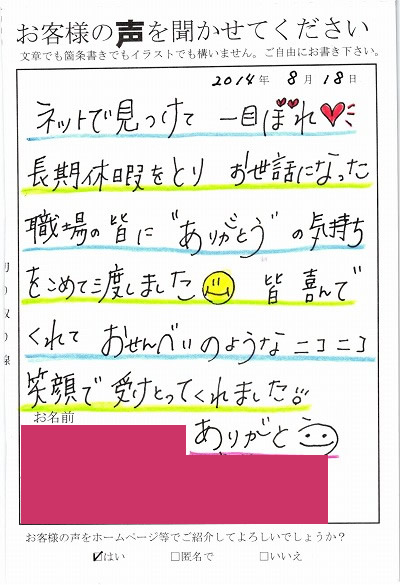 お客様の声を聞かせてください
文章でも箇条書きでもイラストでも構いません。ご自由にお書き下さい。
2014年 8月18日
ネットで見つけて 一目ぼれ
長期休暇をとり お世話になった
職場の皆に"ありがとう"の気持ち
をこめて三度しました 皆 喜んで
くれて おせんべいのような ニコニコ
笑顔で 受けとってくれました!!
お名前
ありがとう
お客様の声をホームページ等でご紹介してよろしいでしょうか?
☑はい □匿名で □いいえ
切り取り線